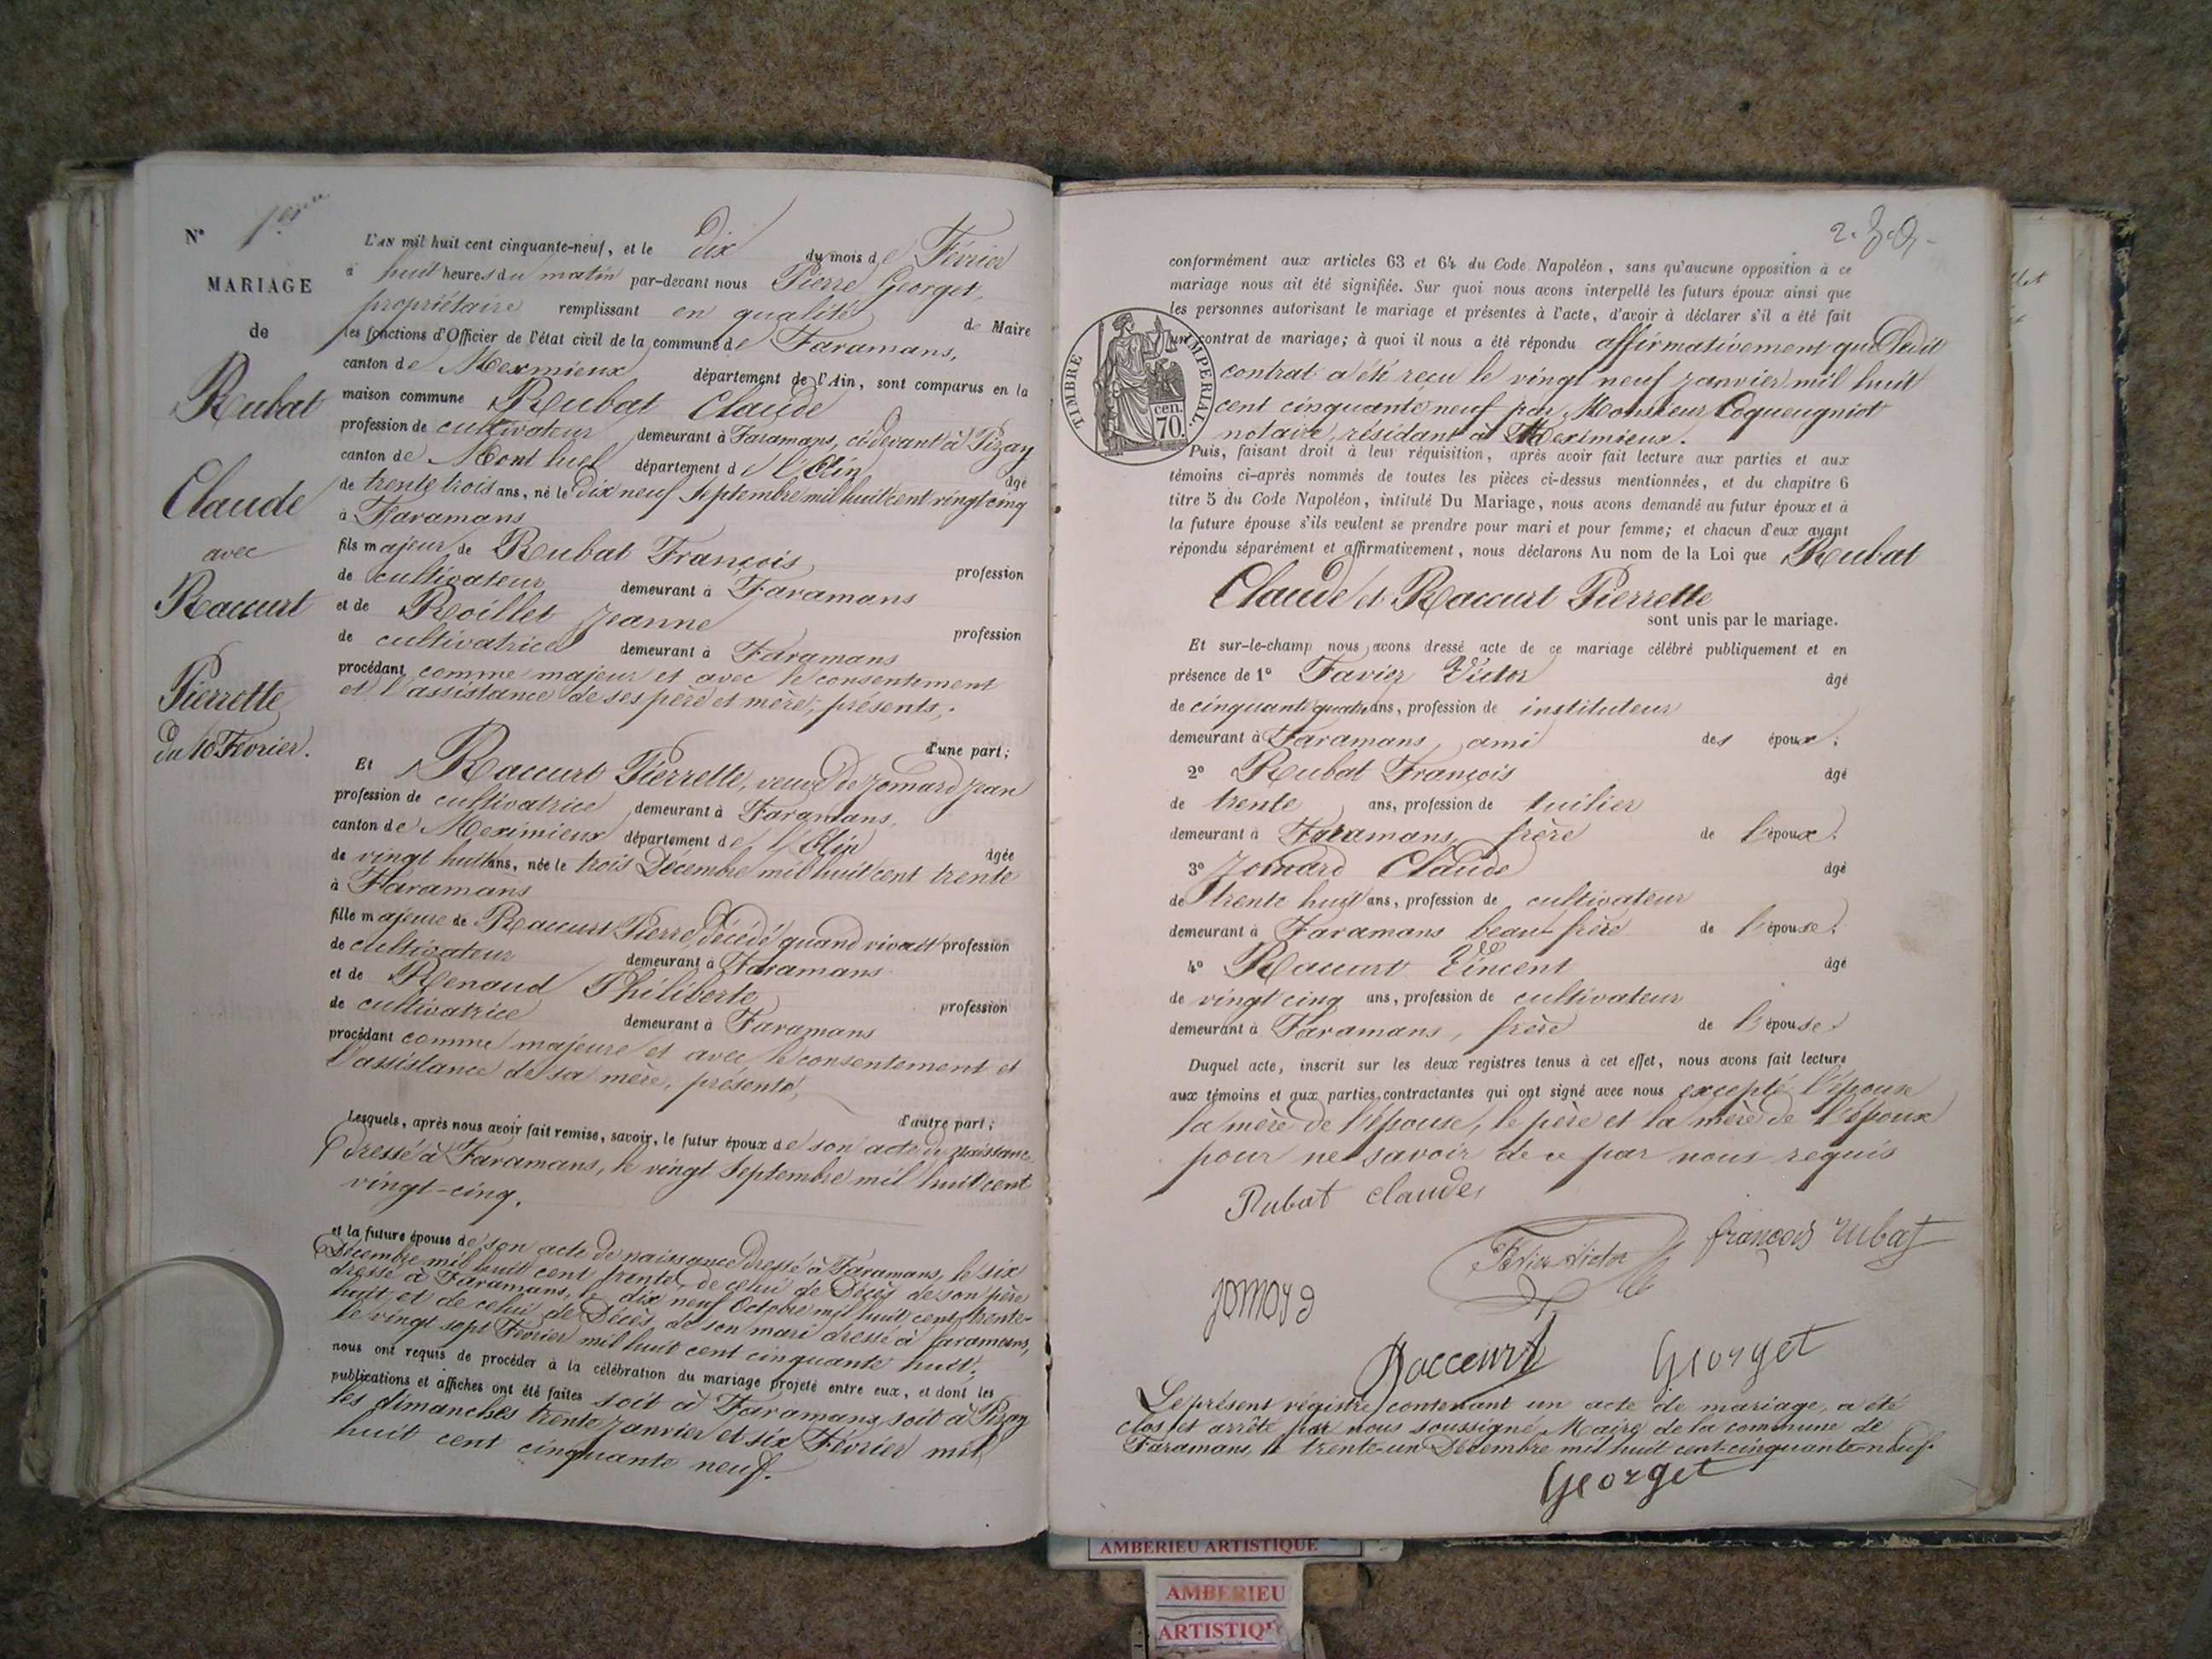 N° 1er
MARIAGE
de
Rubat
Claude
avec
Raccurt
Pierrette
du 10 Février.
L'AN mil huit cent cinquante-neuf, et le dix du mois de Février
à huit heures du matin par-devant nous Pierre Georget,
propriétaire remplissant en qualité de Maire
les fonctions d'Officier de l'état civil de la commune de Faramans,
canton de Meximieux département de l'Ain, sont comparus en la
maison commune Rubat Claude
profession de cultivateur demeurant à Faramans, cidevant à Pizay
canton de Montluel département de l'Ain âgé
de trente trois ans, né le dix neuf Septembre mil huit cent vingt cinq
à Faramans
fils majeur de Rubat François profession
de cultivateur demeurant à Faramans
et de Roillet Jeanne profession
de cultivatrice demeurant à Faramans
procédant comme majeur et avec le consentement
et l'assistance de ses père et mère, présents,
d'une part;
Et Raccurt Pierrette, veuve de Jomard Jean
profession de cultivatrice demeurant à Faramans,
canton de Meximieux département de l'Ain âgée
de vingt huit ans, née le trois Décembre mil huit cent trente
à Faramans
fille majeure de Raccurt Pierre décédé quand vivait profession
de cultivateur demeurant à Faramans
et de Renaud Philiberte profession
de cultivatrice demeurant à Faramans
procédant comme majeure et avec le consentement et
l'assistance de sa mère, présente,
d'autre part;
Lesquels, après nous avoir fait remise, savoir, le futur époux de son acte de naissance
dressé à Faramans, le vingt Septembre mil huit cent
vingt-cinq.
et la future épouse de son acte de naissance dressé à Faramans, le six
Décembre mil huit cent trente, de celui de Décès de son père
dressé à Faramans, le dix neuf Octobre mil huit cent trente-
huit et de celui de Décès de son mari dressé à Faramans,
le vingt sept Février mil huit cent cinquante huit,
nous ont requis de procéder à la célébration du mariage projeté entre eux, et dont les
publications et affiches ont été faites soit à Faramans, soit à Pizay
les dimanches trente Janvier et six Février mil
huit cent cinquante neuf.
conformément aux articles 63 et 64 du Code Napoléon, sans qu'aucune opposition à ce
mariage nous ait été signifiée. Sur quoi nous avons interpellé les futurs époux ainsi que
les personnes autorisant le mariage et présentes à l'acte, d'avoir à déclarer s'il a été fait
un contrat de mariage; à quoi il nous a été répondu affirmativement que ledit
contrat a été reçu le vingt neuf Janvier mil huit
cent cinquante neuf par Monsieur Coqueugniot
notaire, résidant à Meximieux.
TIMBRE IMPERIAL
cen.
70.
Puis, faisant droit à leur réquisition, après avoir fait lecture aux parties et aux
témoins ci-après nommés de toutes les pièces ci-dessus mentionnées, et du chapitre 6
titre 5 du Code Napoléon, intitulé Du Mariage, nous avons demandé au futur époux et à
la future épouse s'ils veulent se prendre pour mari et pour femme; et chacun d'eux ayant
répondu séparément et affirmativement, nous déclarons Au nom de la Loi que Rubat
Claude et Raccurt Pierrette
sont unis par le mariage.
Et sur-le-champ nous avons dressé acte de ce mariage célébré publiquement et en
présence de 1° Favier Victor âgé
de cinquante quatre ans, profession de instituteur
demeurant à Faramans, ami des époux;
2° Rubat François âgé
de trente ans, profession de tuilier
demeurant à Faramans, frère de l'époux;
3° Jomard Claude âgé
de trente huit ans, profession de cultivateur
demeurant à Faramans beau-frère de l'épouse;
4° Raccurt Vincent âgé
de vingt cinq ans, profession de cultivateur
demeurant à Faramans, frère de l'épouse
Duquel acte, inscrit sur les deux registres tenus à cet effet, nous avons fait lecture
aux témoins et aux parties contractantes qui ont signé avec nous excepté l'épouse
la mère de l'épouse, le père et la mère de l'époux
pour ne savoir de ce par nous requis
Rubat claude
Favier Victor
françois rubat
jomard
Raccurt
Georget
Le présent régistre contenant un acte de mariage, a été
clos et arrêté par nous soussigné Maire de la commune de
Faramans, le trente-un Décembre mil huit cent cinquante-neuf.
Georget
AMBERIEU ARTISTIQUE
AMBERIEU
ARTISTIQ